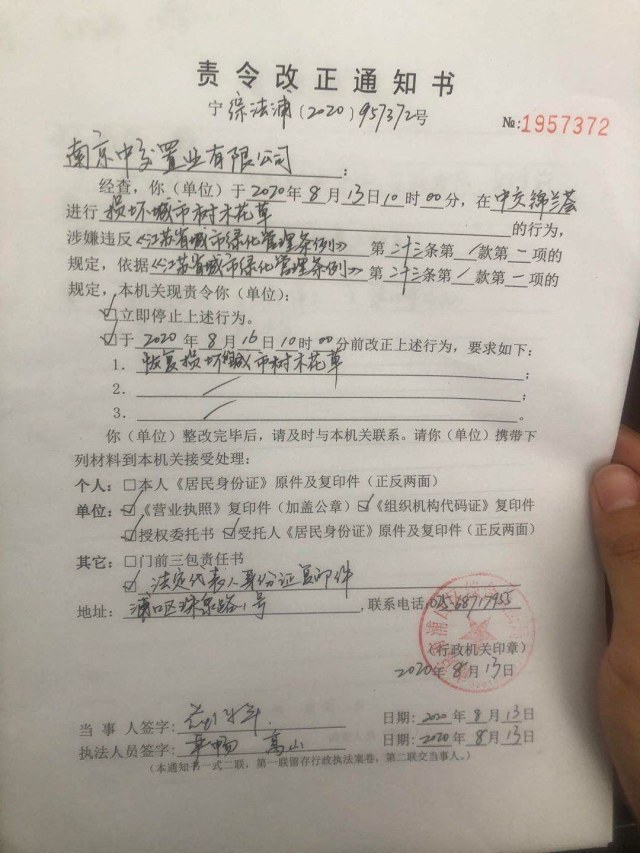 责令改正通知书
宁综法浦(2020)957372号
№:1957372
南京中交置业有限公司:
经查,你(单位)于2020年8月13日10时00分,在中交锦兰荟
进行损坏城市树木花草的行为,
涉嫌违反《江苏省城市绿化管理条例》第二十三条第/款第一项的
规定,依据《江苏省城市绿化管理条例》第二十三条第/款第一项的
规定,本机关现责令你(单位):
☑立即停止上述行为。
☑于2020年8月16日10时00分前改正上述行为,要求如下:
1. 恢复损坏城市树木花草;
2. /;
3. /。
你(单位)整改完毕后,请及时与本机关联系。请你(单位)携带下
列材料到本机关接受处理:
个人:□本人《居民身份证》原件及复印件(正反两面)
单位:☑《营业执照》复印件(加盖公章)☑《组织机构代码证》复印件
☑授权委托书 ☑受托人《居民身份证》原件及复印件(正反两面)
其它:□门前三包责任书
☑法定代表人身份证复印件
地址:浦口区珠泉路1号,联系电话:025-68717955
(行政机关印章)
2020年8月13日
当事人签字: 日期:2020年8月13日
执法人员签字: 高山 日期:2020年8月13日
(本通知书一式二联,第一联留存行政执法案卷,第二联交当事人。)